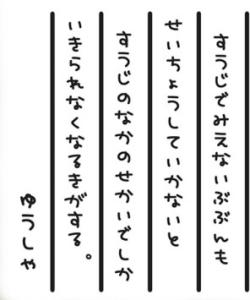 すうじでみえないぶぶんも
せいちょうしていかないと
すうじのなかのせかいでしか
いきられなくなるきがする。
ゆうしゃ